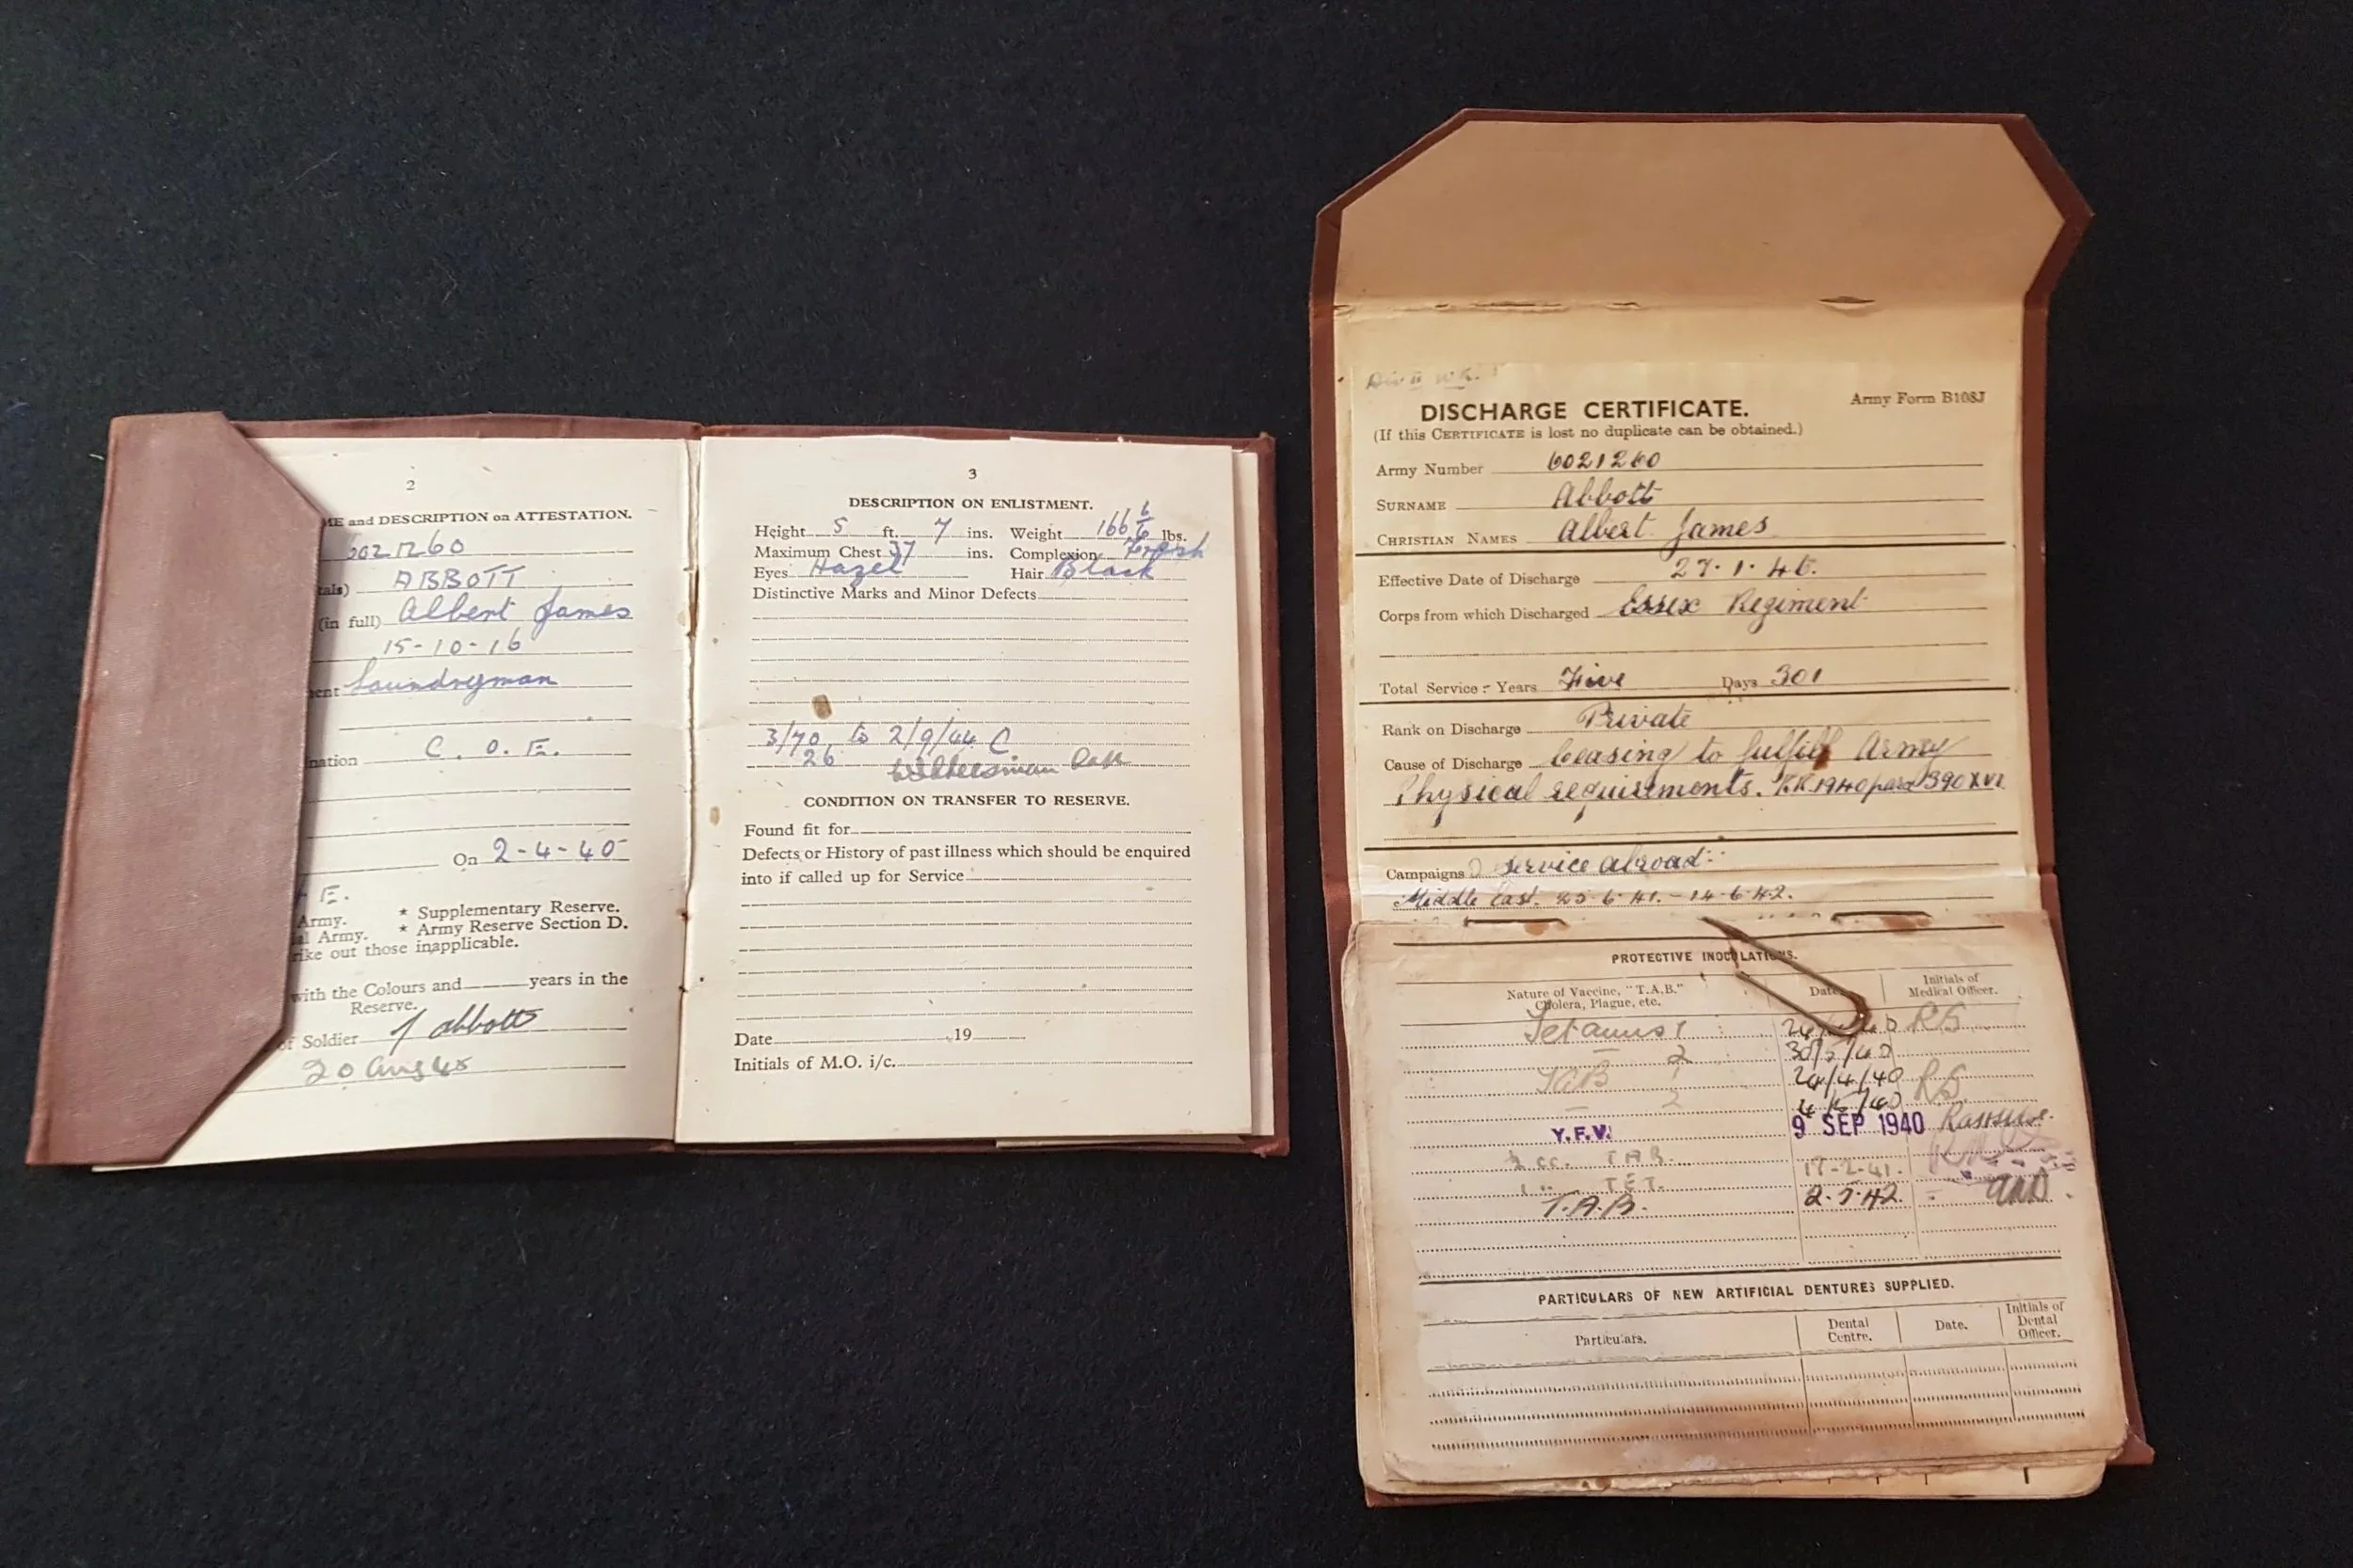 2
ME and DESCRIPTION on ATTESTATION.
6021260
tals) ABBOTT
(in full) Albert James
15-10-16
ent Laundryman
nation C. O. E.
On 2-4-40
E.
Army. * Supplementary Reserve.
al Army. * Army Reserve Section D.
rike out those inapplicable.
with the Colours and years in the
Reserve.
of Soldier abbott
20 Aug 45
3
DESCRIPTION ON ENLISTMENT.
Height 5 ft. 7 ins. Weight 166 6/6 lbs.
Maximum Chest 37 ins. Complexion Fresh
Eyes Hazel Hair Black
Distinctive Marks and Minor Defects
3/70 to 2/9/44 C
26
CONDITION ON TRANSFER TO RESERVE.
Found fit for
Defects or History of past illness which should be enquired
into if called up for Service
Date 19
Initials of M.O. i/c.
DISCHARGE CERTIFICATE. Army Form B108J
(If this CERTIFICATE is lost no duplicate can be obtained.)
Army Number 6021260
SURNAME Abbott
CHRISTIAN NAMES Albert James
Effective Date of Discharge 27.1.46.
Corps from which Discharged Essex Regiment
Total Service:- Years Five Days 301
Rank on Discharge Private
Cause of Discharge Ceasing to fulfill Army
Physical requirements. 1940 para 390 XVI
Campaigns Service abroad:
Middle East. 25.6.41.-14.6.42.
PROTECTIVE INOCULATIONS.
Nature of Vaccine, "T.A.B." Cholera, Plague, etc. Date Initials of Medical Officer.
Tetanus 1 RB
2 30/5/40
TAB 1 24/4/40 RB
2 4/5/40
Y.F.V. 9 SEP 1940
½ cc. TAB. 17-2-41.
1 " TET.
T.A.B. 2.5.42
PARTICULARS OF NEW ARTIFICIAL DENTURES SUPPLIED.
Particulars. Dental Centre. Date. Initials of Dental Officer.